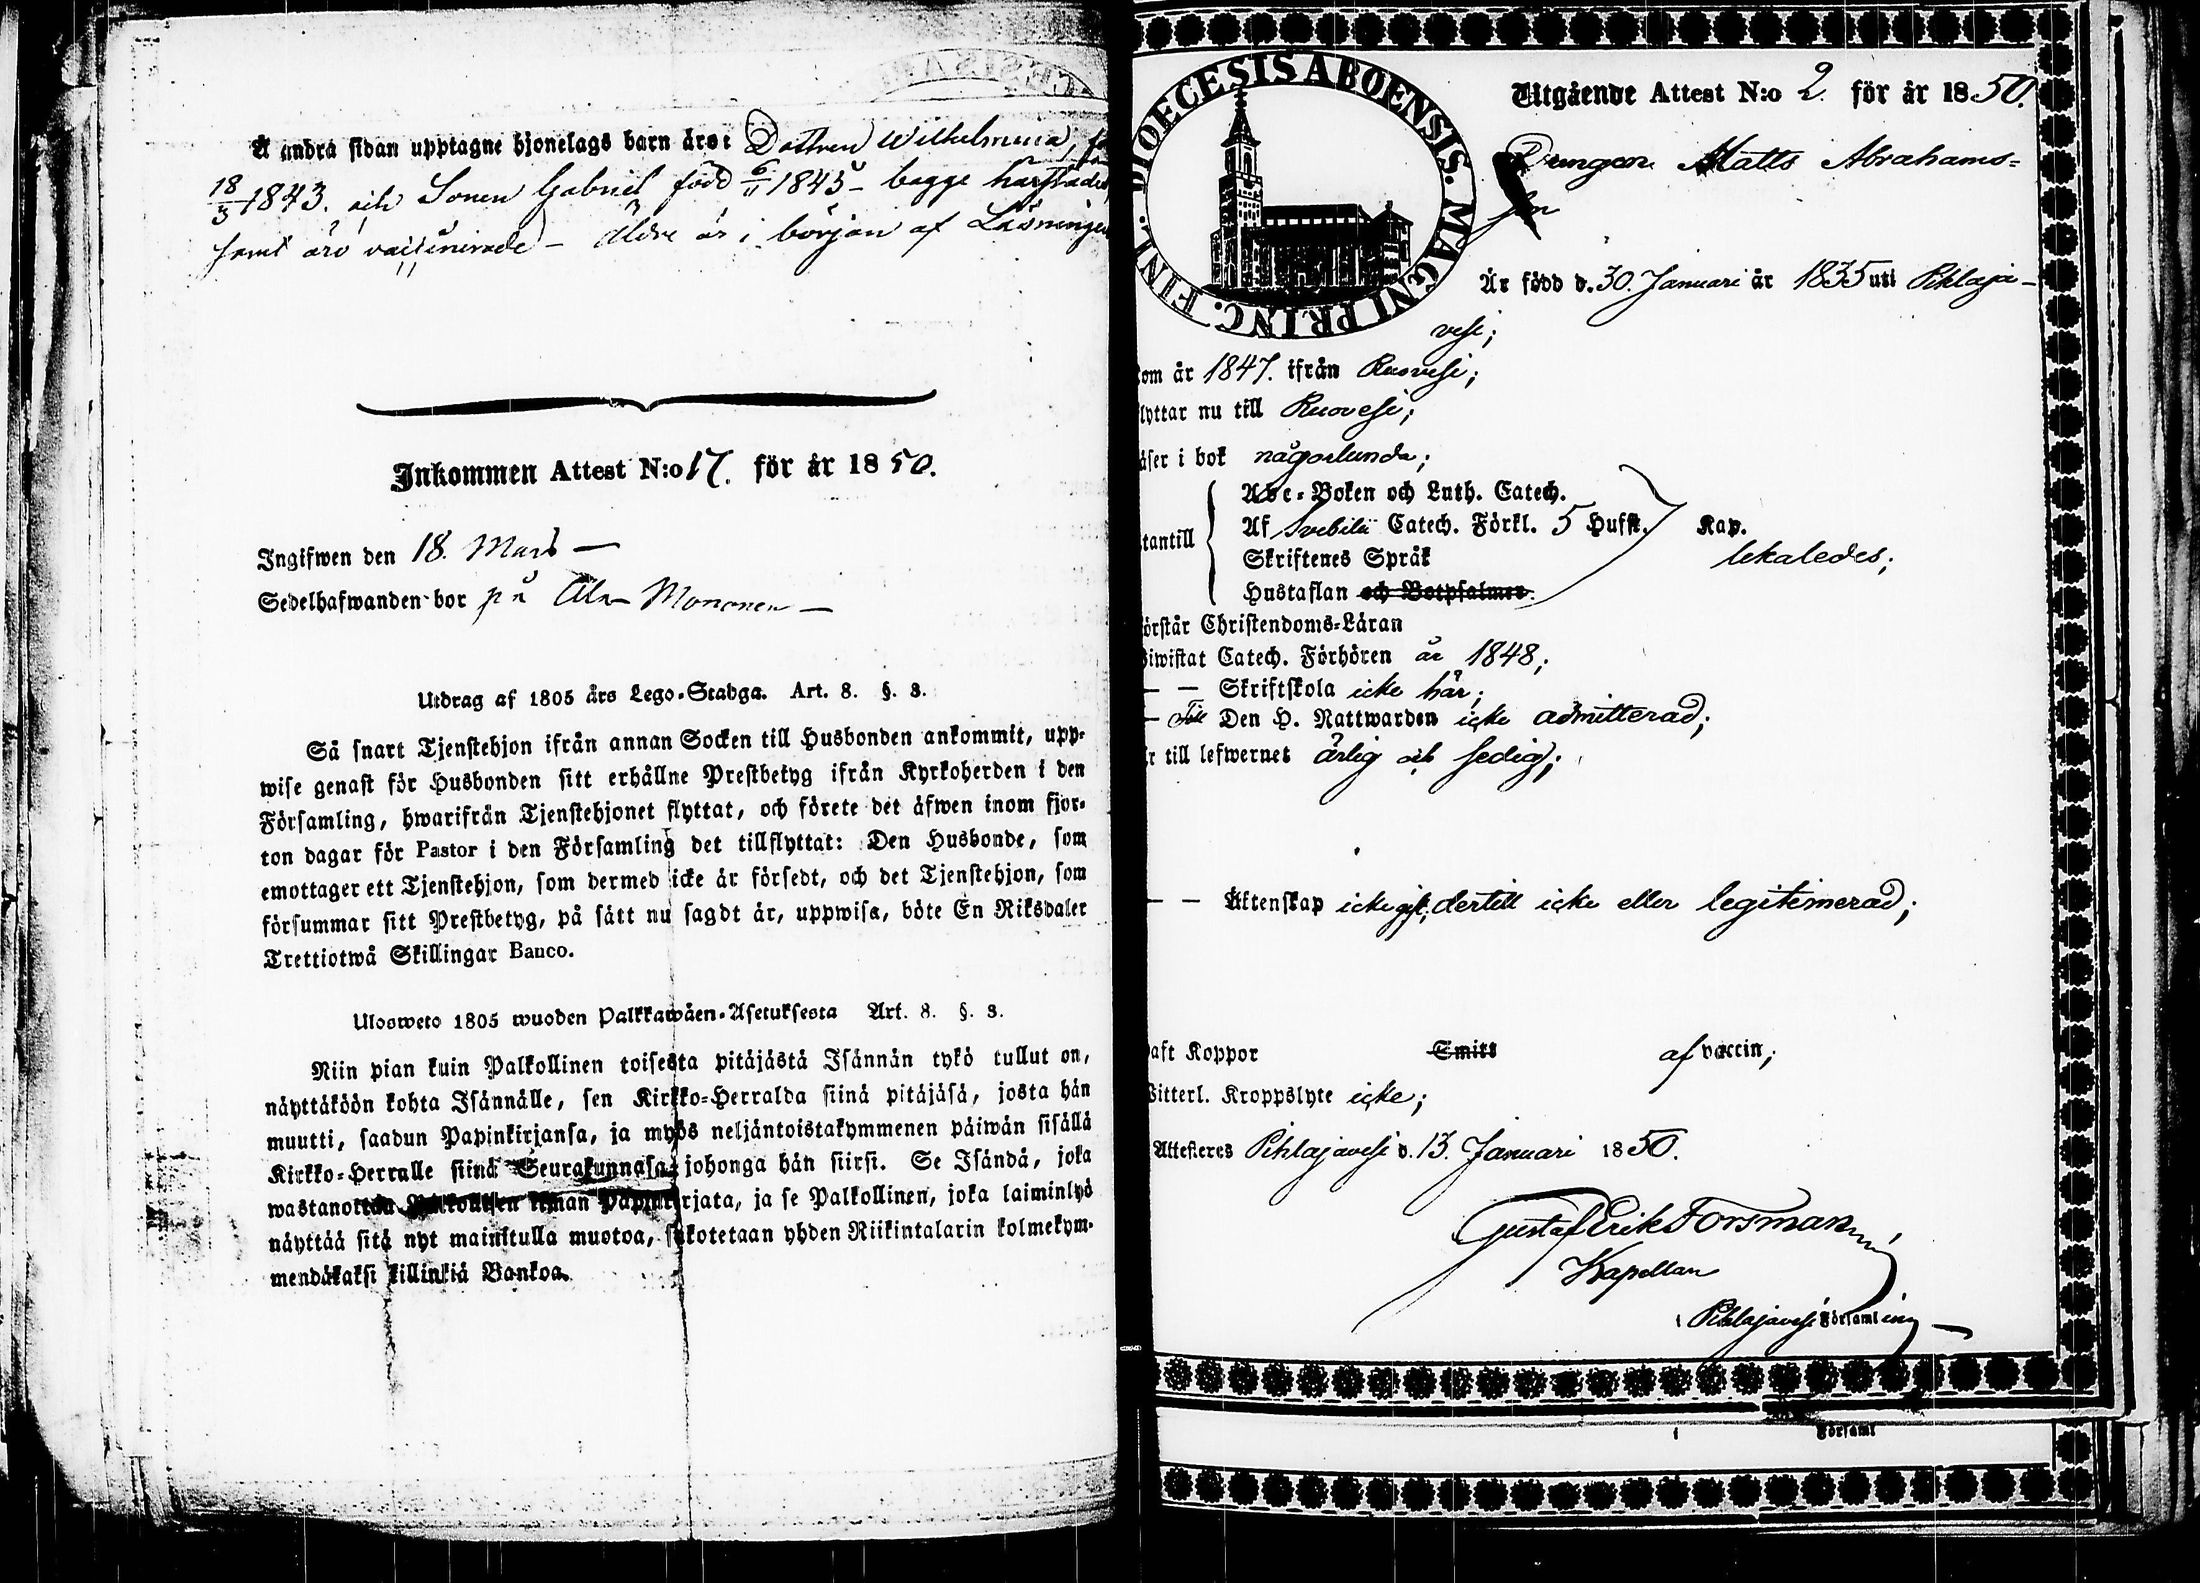 Å andra sidan upptagne hjonelags barn äro: Dottren Wilhelmina,
18/3 1843. och Sonen Gabriel född 6/11 1845 – bägge härstädes
samt äro vaccinerade – Äldre är i början af Läsningen
Inkommen Attest N:o 17. för år 1850.
Ingifwen den 18. Mars –
Sedelhafwanden bor på Ala Mononen –
Utdrag af 1805 års Lego-Stadga. Art. 8. §. 3.
Så snart Tjenstehjon ifrån annan Socken till Husbonden ankommit, upp-
wise genast för Husbonden sitt erhållne Prestbetyg ifrån Kyrkoherden i den
Församling, hwarifrån Tjenstehjonet flyttat, och förete det äfwen inom fjor-
ton dagar för Pastor i den Församling det tillflyttat: Den Husbonde, som
emottager ett Tjenstehjon, som dermed icke är försedt, och det Tjenstehjon, som
försummar sitt Prestbetyg, på sätt nu sagdt är, uppwisa, böte En Riksdaler
Trettiotwå Skillingar Banco.
Ulosweto 1805 wuoden Palkkawäen-Asetuksesta Art. 8. §. 3.
Niin pian kuin Palkollinen toisesta pitäjästä Isännän tykö tullut on,
näyttäköön kohta Isännälle, sen Kirkko-Herralda siinä pitäjäsä, josta hän
muutti, saadun Papinkirjansa, ja myös neljäntoistakymmenen päiwän sisällä
Kirkko-Herralle siinä Seurakunnasa, johonga hän siirsi. Se Isändä, joka
wastanottaa Palkollisen ilman Papinkirjata, ja se Palkollinen, joka laiminlyö
näyttää sitä nyt mainitulla muotoa, sakotetaan yhden Riikintalarin kolmekym-
mendäkaksi killinkiä Bankoa.
DIOECESIS ABOENSIS. MAGNI PRINC. FINL.
Utgående Attest N:o 2. för år 1850.
Drengen Matts Abrahams=
son
Är född d. 30. Januari år 1835 uti Pihlaja–
vesi;
om år 1847. ifrån Ruovesi;
lyttar nu till Ruovesi;
äser i bok någorlunda;
tantill
Abc-Boken och Luth. Catech.
Af Svebilii Catech. Förkl. 5 Hufst. Kap.
Skriftenes Språk lekaledes;
Hustaflan och Botpsalmer.
örstår Christendoms-Läran
iwistat Catech. Förhören år 1848;
— — Skriftskola icke här;
— Till Den H. Nattwarden icke admitterad;
r till lefwernet ärlig och sedig;
— — Äktenskap icke gift; dertill icke eller legitimerad;
aft Koppor Smitt af vaccin;
itterl. Kroppslyte icke;
Attesteres Pihlajavesi d. 13. Januari 1850.
Gustaf Erik Forsman
Kapellan
i Pihlajavesi Församling –
i Församl